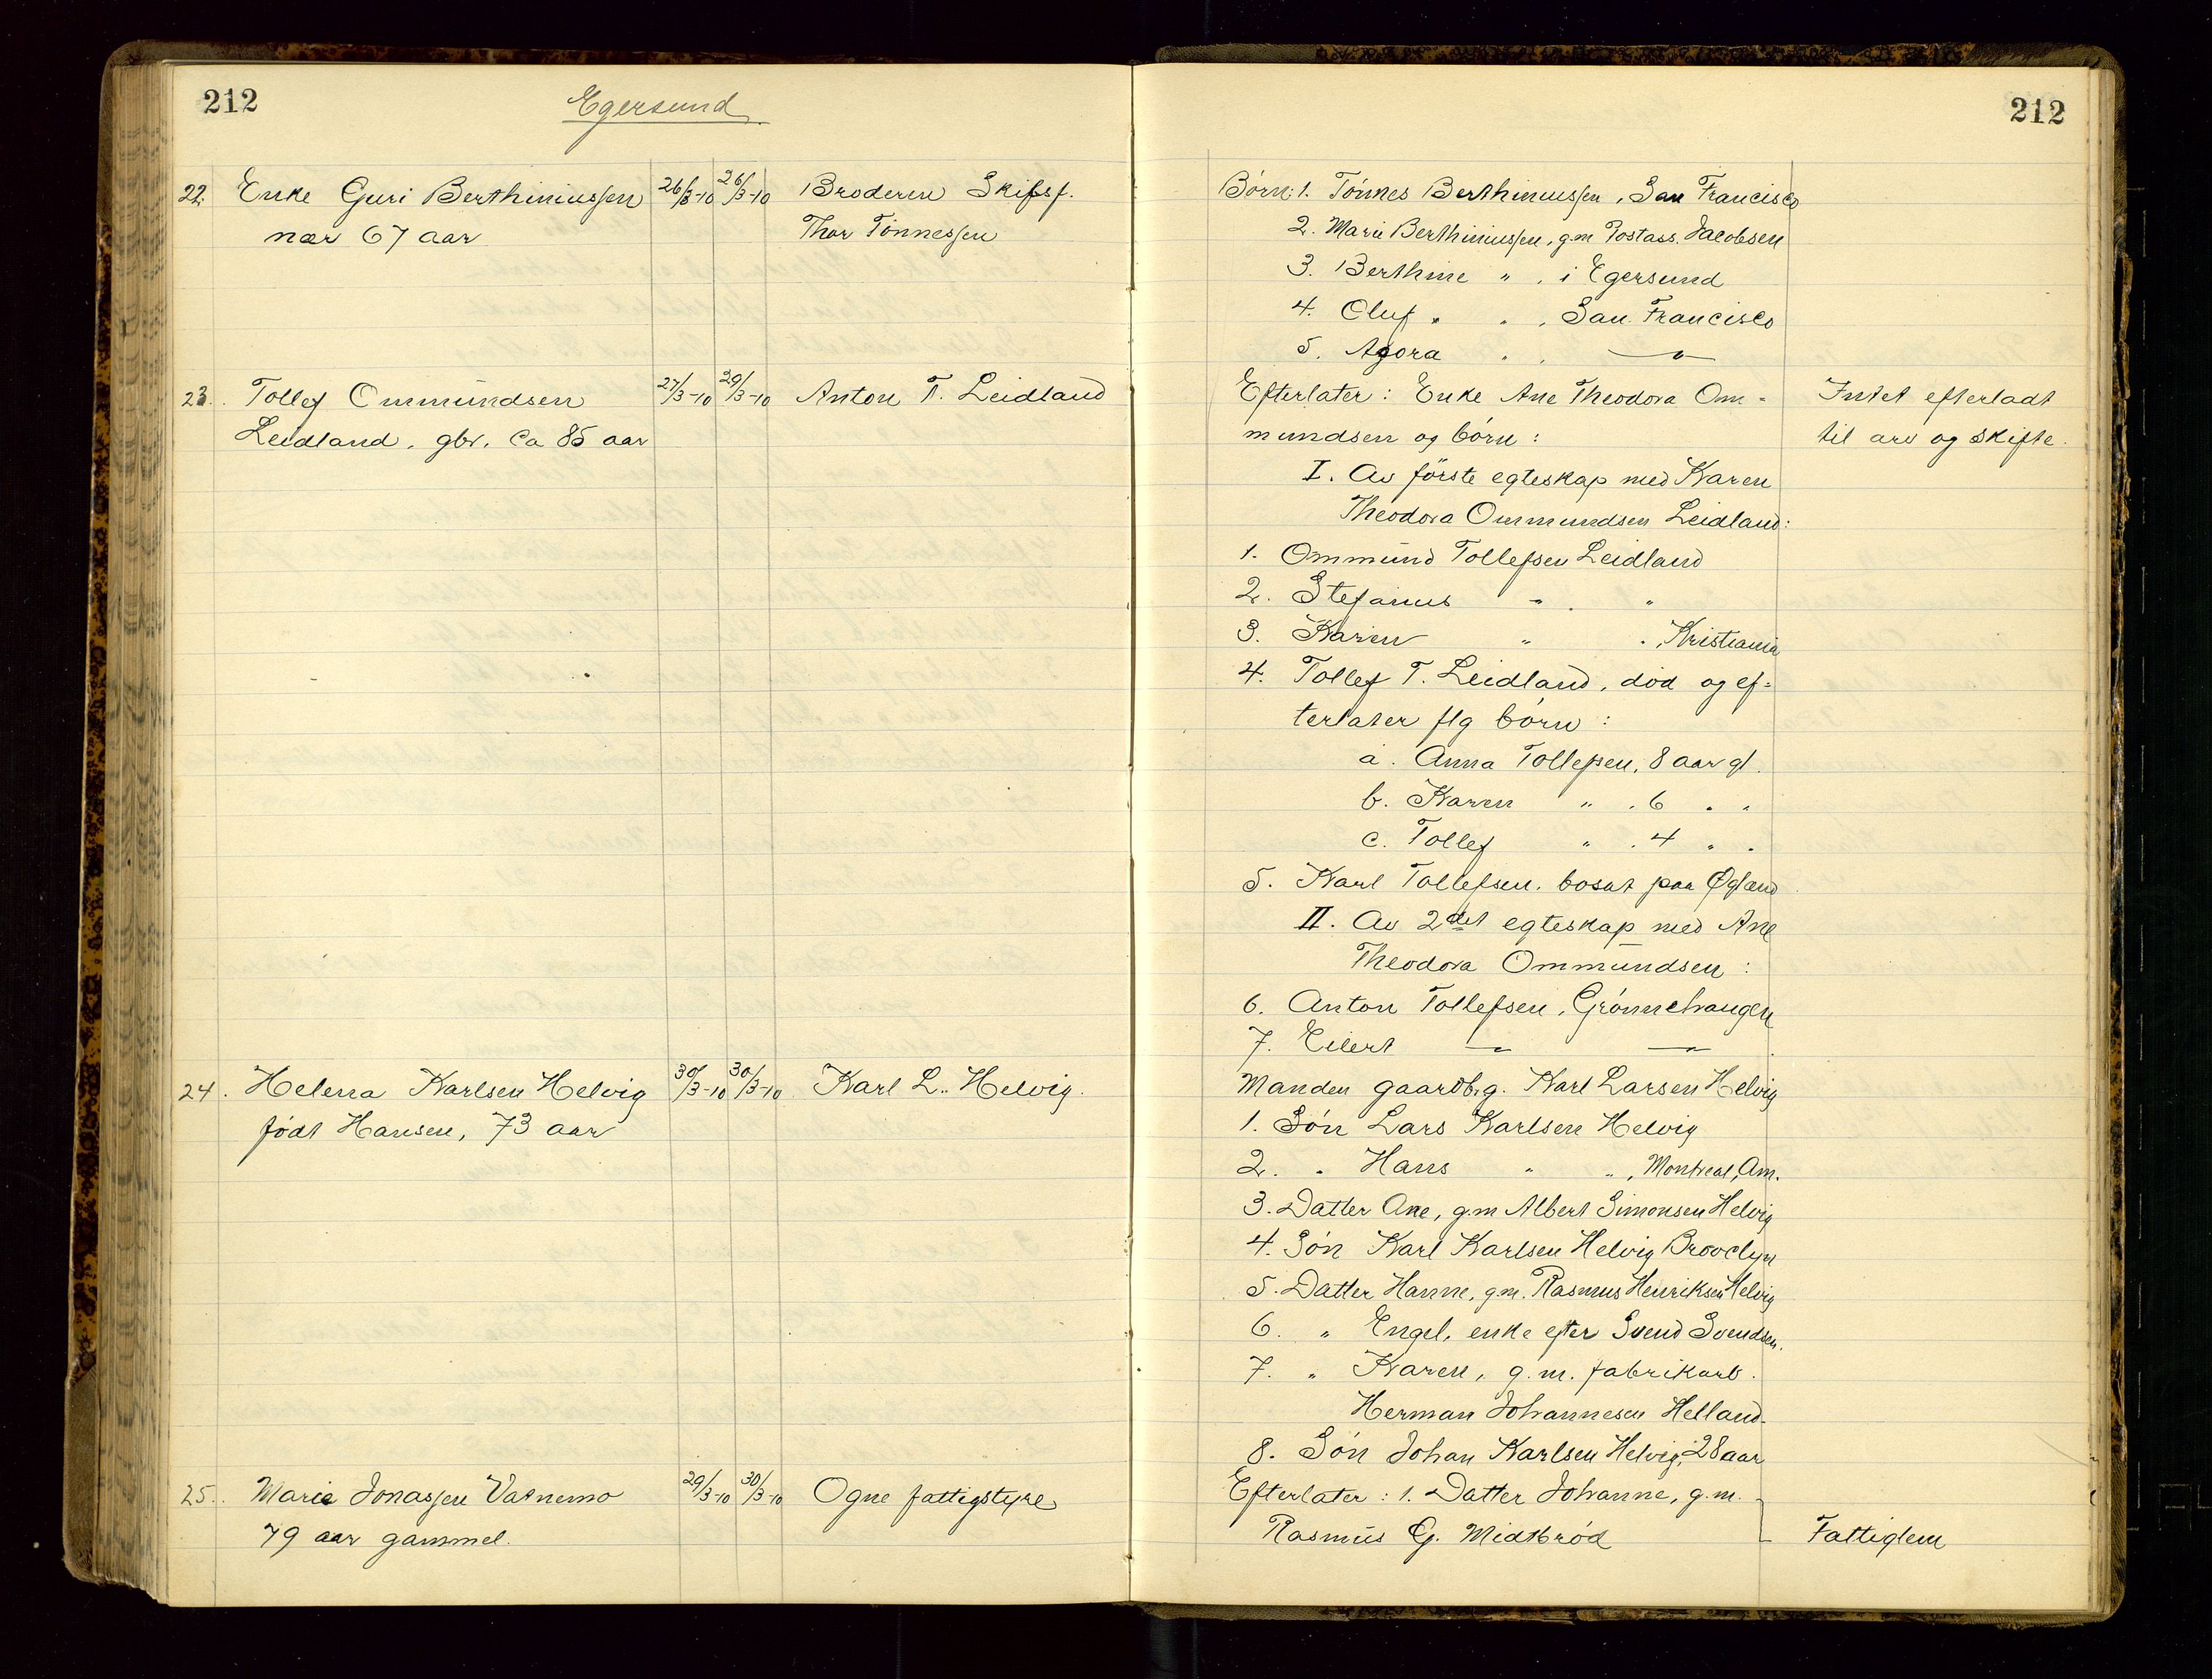 212
Egersund
22. Enke Guri Berthiniussen 26/3-10 26/3-10 Broderen Skibsf.
nær 67 aar Thor Tønnessen
23. Tollef Ommundsen 27/3-10 29/3-10 Anton T. Leidland
Leidland, gbr. Ca 85 aar
24. Helena Karlsen Helvig 30/3-10 30/3-10 Karl L. Helvig.
født Hansen, 73 aar
25. Marie Jonassen Vatnemo 29/3-10 30/3-10 Ogne fattigstyre
79 aar gammel.
212
Børn: 1. Tønnes Berthiniussen, San Francisco
2. Marie Berthiniussen, g.m Postass. Jacobsen
3. Berthine " , i Egersund
4. Oluf " " , San Francisco
5. Agora " , —"—
Efterlater: Enke Ane Theodora Om= Intet efterladt
mundsen og børn: til arv og skifte.
I. Av første egteskap med Karen
Theodora Ommundsen Leidland:
1. Ommund Tollefsen Leidland
2. Stefanus " . "
3. Karen " " , Kristiania
4. Tollef T. Leidland, død og ef=
terlater flg børn:
a. Anna Tollefsen, 8 aar gl.
b. Karen " , 6 " "
c. Tollef " , 4 " "
5. Karl Tollefsen, bosat paa Øglænd
II. Av 2det egteskap med Ane
Theodora Ommundsen:
6. Anton Tollefsen, Grønnehaugen
7. Eilert —"— —"—
Manden gaardbrg. Karl Larsen Helvig
1. Søn Lars Karlsen Helvig
2. " Hans " " , Montreal, Am.
3. Datter Ane, g.m Albert Simonsen Helvig
4. Søn Karl Karlsen Helvig Brooclyn
5. Datter Hanne, g.m. Rasmus Henriksen Helvig
6. " Engel, enke efter Svend Svendsen.
7. " Karen, g.m. fabrikarb.
Herman Johannesen Helland.
8. Søn Johan Karlsen Helvig, 28 aar
Efterlater: 1. Datter Johanne, g.m.
Rasmus G. Midtbrød Fattiglem